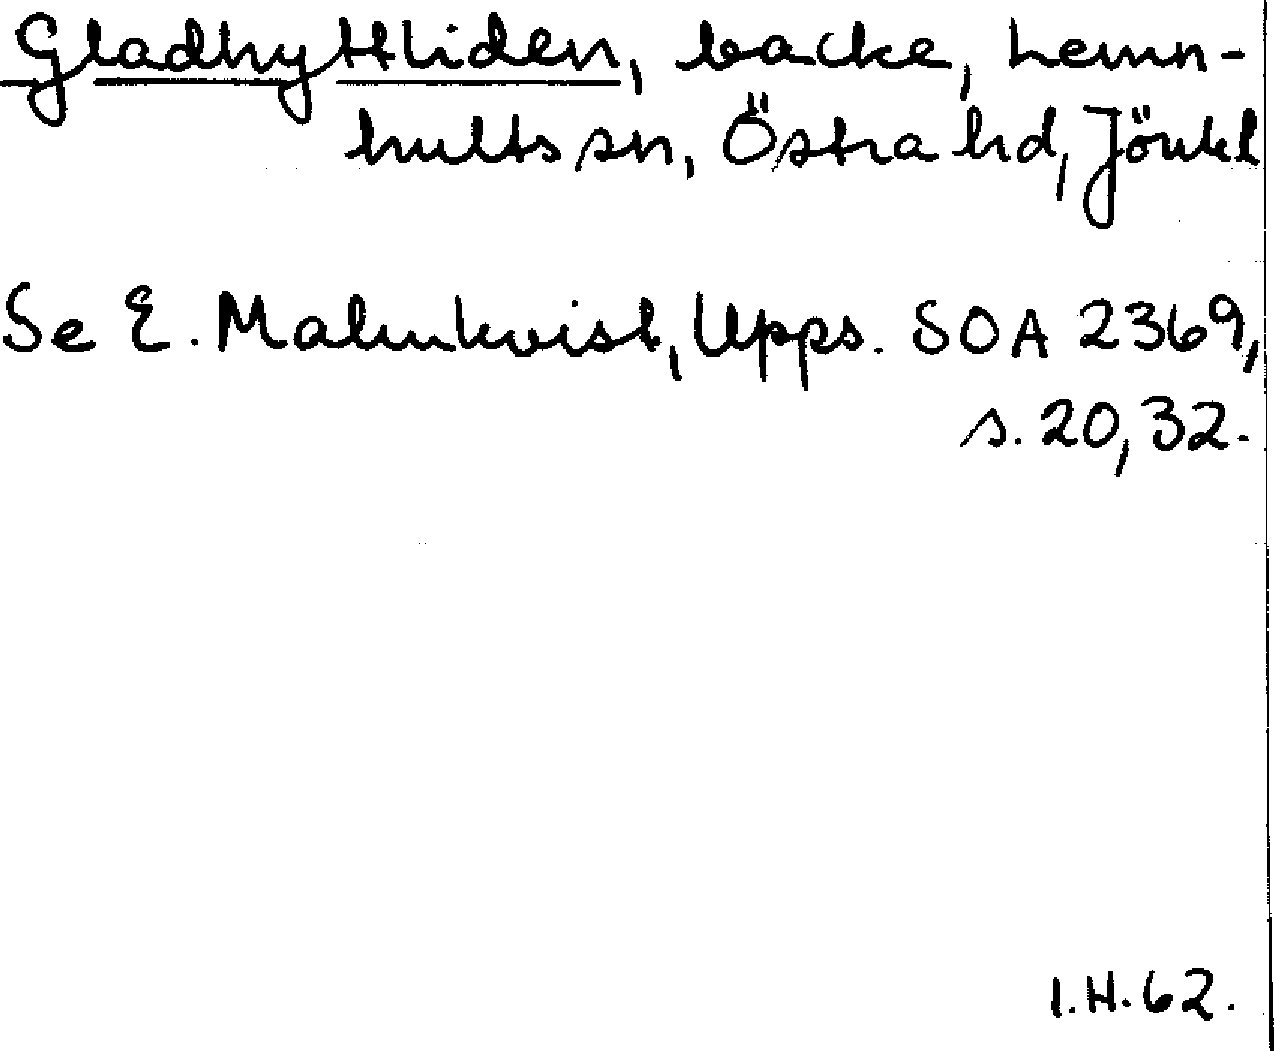 Gladhyttliden, backe, Lemn-
hults sn, Östra hd, Jönkl
Se E. Malmkvist, Upps. SOA 2369,
s. 20, 32.
I.H. 62.